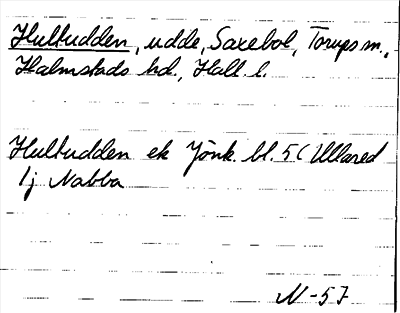 Hultudden, udde, Saxebol, Torups sn.,
Halmstads hd., Hall. l.
Hultudden ek Jönk. bl. 5 (Ullared
lj Nabba
N-57